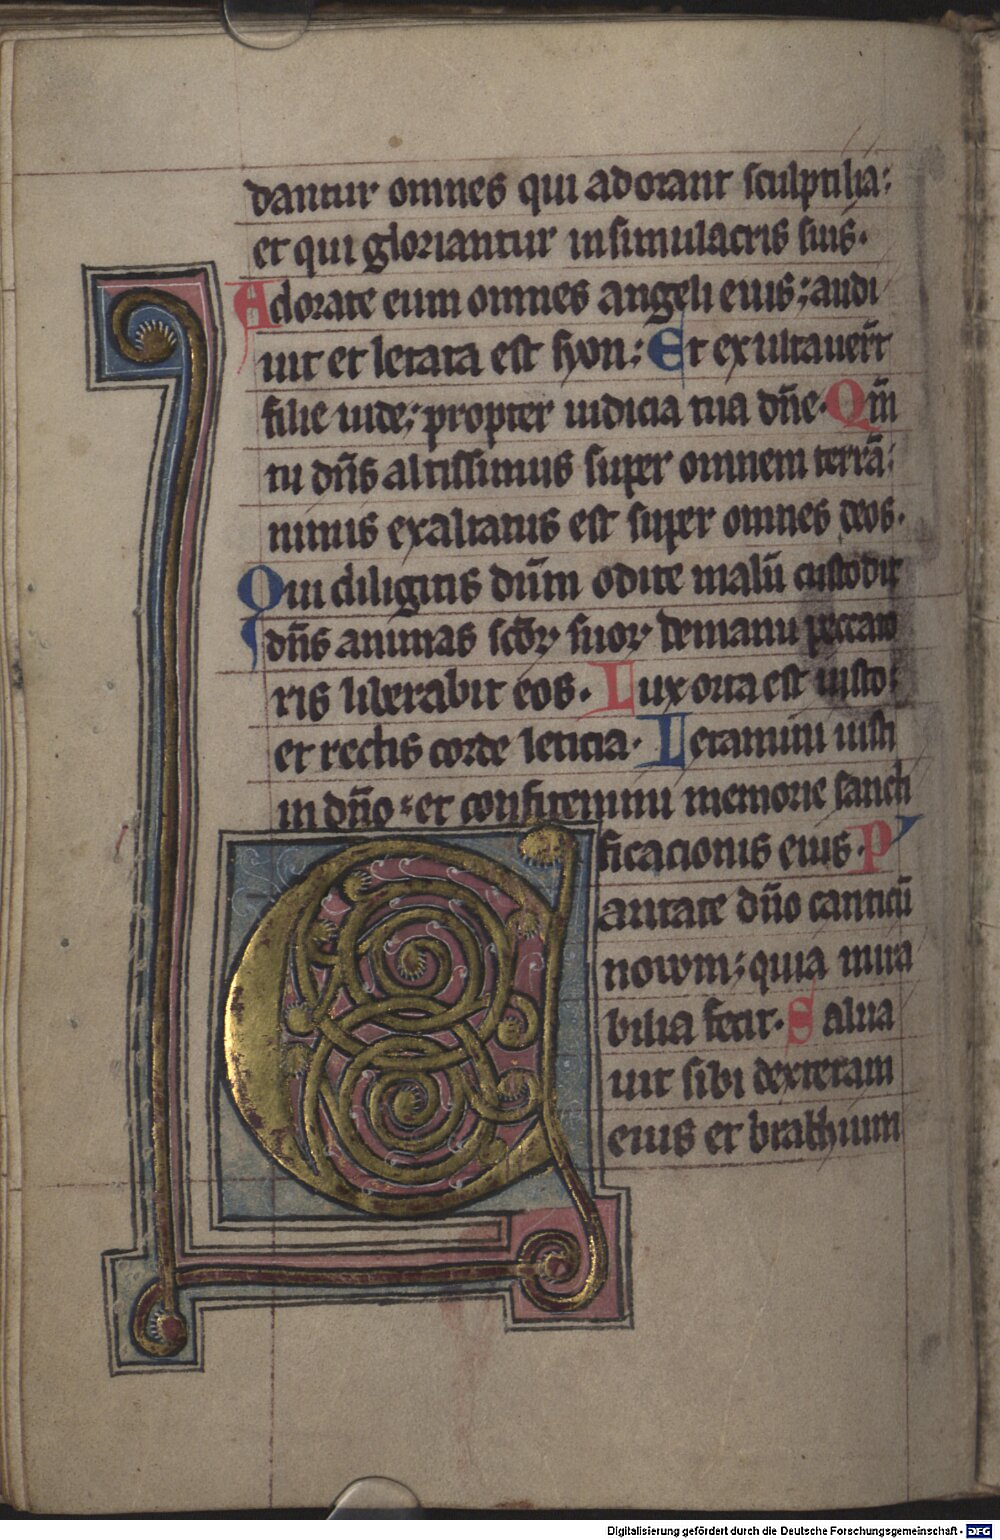 dantur omnes qui adorant sculptilia:
et qui gloriantur in simulacris suis.
Adorate eum omnes angeli eius; audi
uit et letata est syon: Et exultauer̄t
filie iude; propter iudicia tua dn̄e. Qm̄
tu dn̄s altissimus super omnem terrā;
nimis exaltatus est super omnes deos.
Qui diligitis dūm odite malū custodit
dn̄s animas scōꝝ suoꝝ de manu peccato
ris liberabit eos. Lux orta est iusto;
et rectis corde leticia. Letamini iusti
in dn̄o: et confitemini memorie sancti
ficacionis eius. P'
C antate dn̄o canticū
nouum; quia mira
bilia fecit. Salua
uit sibi dexteram
eius et brachium
Digitalisierung gefördert durch die Deutsche Forschungsgemeinschaft - DFG